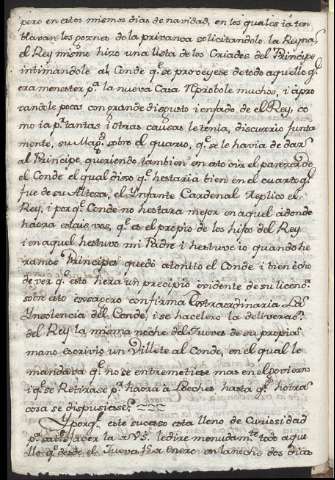 pero en estos mismos dias de navidad, en los quales ia ten
blavan los pernos de la privanza solicitandole la Reyna
el Rey mismo hizo una lista de los Criados del Principe
intimandole al Conde q.e se proveyese de todo aquello q.e
era menester p.a la nueva Casa
candole pocas con grande disgusto i enfado de el Rey, co
mo ia p.r tantas i otras causas le tenia, discurrio junta
mente, su Mag.d sobre el quarto, q.e se le havia de dar
al Principe, queriendo tambien en esto oir el parecer de
el Conde el qual dixo q.e hestaria bien en el cuarto q.e
fue de su Alteza, el Ynfante Cardenal Replico el
Rey, i porq.e Conde no hestara mejor en aquel adonde
haora estais vos, q.e es el propio de los hijos del Rey
i en aquel hestuvo mi Padre i hestuve io quando he
ramos Principes quedo atonito el Conde i bien echo
de ver q.e esto hera un precipicio evidente de su
sobre esto confirma extraordinaria
Ynsolencia del Conde, i se hacelero la
del Rey la misma noche del Jueves de su propia
mano escrivio un Villete al Conde, en el qual le
mandava q.e no se entremetiese mas en el govierno
i q.e se Retirase p.a haora a Loeches hasta q.e hotra
cosa se dispusiese
Y porq.e este suceso esta lleno de Curiosidad
p.a satisfacer la a VS. le dire menudam.te todo aque
llo q.e desde el Jueves de Enero en la noche dos dias